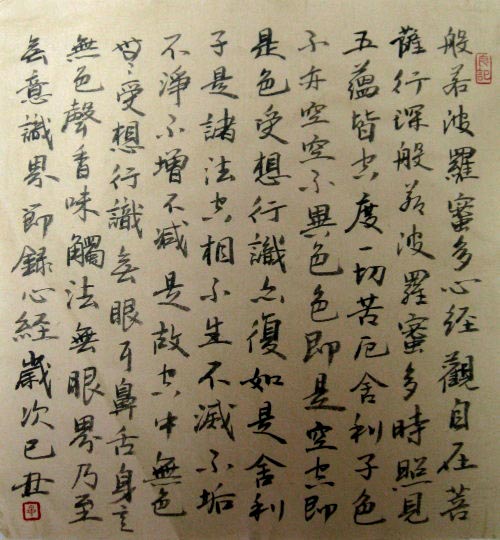 般若波羅蜜多心经觀自在菩
薩行深般若波羅蜜多時照見
五蘊皆空度一切苦厄舍利子色
不亦空空不異色色即是空空即
是色受想行識亦復如是舍利
子是諸法空相不生不滅不垢
不淨不增不減是故空中無色
無受想行識無眼耳鼻舌身意
無色聲香味觸法無眼界乃至
無意識界節錄心經歲次己丑